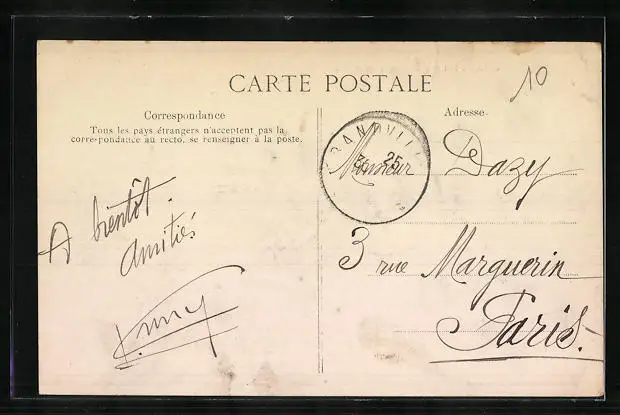 CARTE POSTALE
10
Correspondance
Tous les pays étrangers n'acceptent pas la
correspondance au recto, se renseigner à la poste.
A bientôt.
amitiés
Adresse.
GRANDVILLE
25
Monsieur Dazy
3 rue Marguerin
Paris.